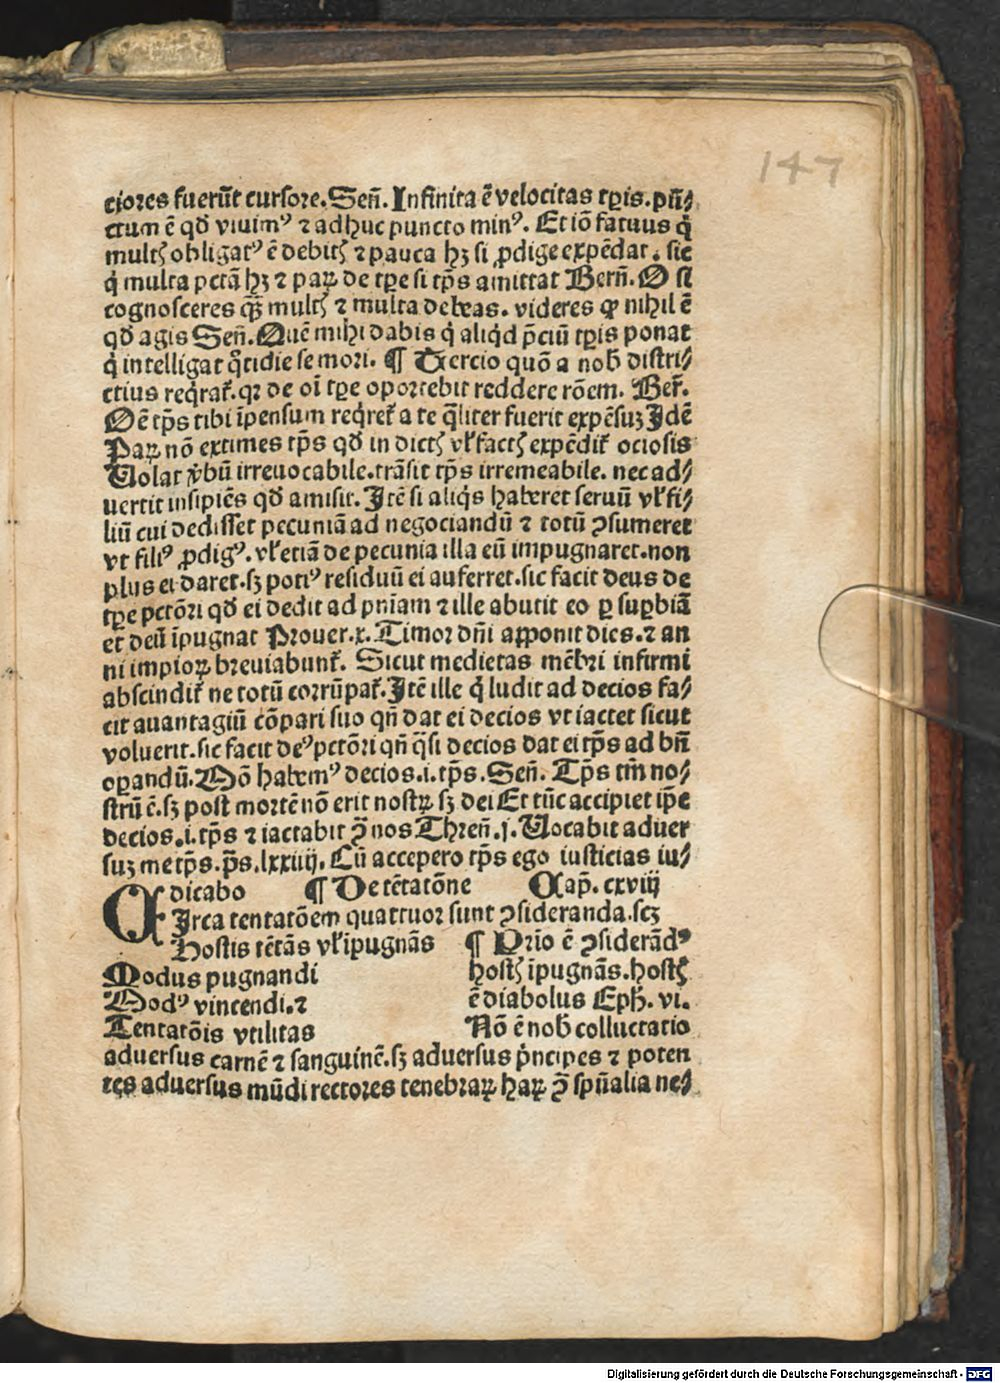 147
ciores fuerūt cursore. Señ. Infinita ē velocitas tp̄is. pū⸗
ctum ē qd̄ viuimꝰ ⁊ adhuc puncto minꝰ. Et iō fatuus q̇
multꝭ obligatꝰ ē debitꝭ ⁊ pauca hꝫ si ꝓdige expēdat. sic
q̇ multa pctā hꝫ ⁊ paꝝ de tp̄e si tp̄s amittat Berñ. O si
cognosceres qꝫ̄ multꝭ ⁊ multa debeas. videres ꝙ nihil ē
qd̄ agis Señ. Quē mihi dabis q̇ aliq̇d p̄ciū tp̄is ponat
q̇ intelligat q̊tidie se mori. ¶ Tercio quō a nob̄ distri⸗
ctius req̇rat̄. qꝛ de oī tp̄e oportebit reddere rōem. Ber̄.
Oē tp̄s tibi īpensum req̇ret̄ a te q̄liter fuerit expēsuꝫ Idē
Paꝝ nō extimes tp̄s qd̄ in dictꝭ vl̄ factꝭ expēdit̄ ociosis
Uolat v̇bū irreuocabile. trāsit tp̄s irremeabile. nec ad⸗
uertit insipiēs qd̄ amisit. Itē si aliq̇s haberet seruū vl̄ fi⸗
liū cui dedisset pecuniā ad negociandū ⁊ totū ꝯsumeret
vt filiꝰ ꝓdigꝰ. vl̄ etiā de pecunia illa eū impugnaret. non
plus ei daret. sꝫ potiꝰ residuū ei auferret. sic facit deus de
tp̄e pctōri qd̄ ei dedit ad pn̄iam ⁊ ille abutit eo ꝑ suꝑbiā
et deū īpugnat Prouer. x. Timor dn̄i apponit dies. ⁊ an
ni impioꝝ breuiabunt̄. Sicut medietas mēbri infirmi
abscindit̄ ne totū corrūpat̄. Itē ille q̇ ludit ad decios fa⸗
cit auantagiū cōpari suo qn̄ dat ei decios vt iactet sicut
voluerit. sic facit deꝰ pctōri qn̄ q̄si decios dat ei tp̄s ad bn̄
oꝑandū. Mō habemꝰ decios .i. tp̄s. Señ. Tp̄s tm̄ no⸗
strū ē. sꝫ post mortē nō erit nostꝝ sꝫ dei Et tūc accipiet ip̄e
decios .i. tp̄s ⁊ iactabit ꝯ̄ nos Threñ. j. Uocabit aduer
suꝫ me tp̄s. ps̄. lxxiiij. Cū accepero tp̄s ego iusticias iu⸗
dicabo ¶ De tētatōne Cap̄. cxviij
CIrca tentatōem quattuor sunt ꝯsideranda. scꝫ
Hostis tētās vl̄ īpugnās
Modus pugnandi
Modꝰ vincendi. ⁊
Tentatōis vtilitas
¶ Prīo ē ꝯsiderādꝰ
hostꝭ īpugnās. hostꝭ
ē diabolus Eph̄. vi.
Nō ē nob̄ colluctatio
aduersus carnē ⁊ sanguinē. sꝫ aduersus ṗncipes ⁊ poten
tes aduersus mūdi rectores tenebraꝝ haꝝ ꝯ̄ spūalia ne⸗
Digitalisierung gefördert durch die Deutsche Forschungsgemeinschaft - DFG